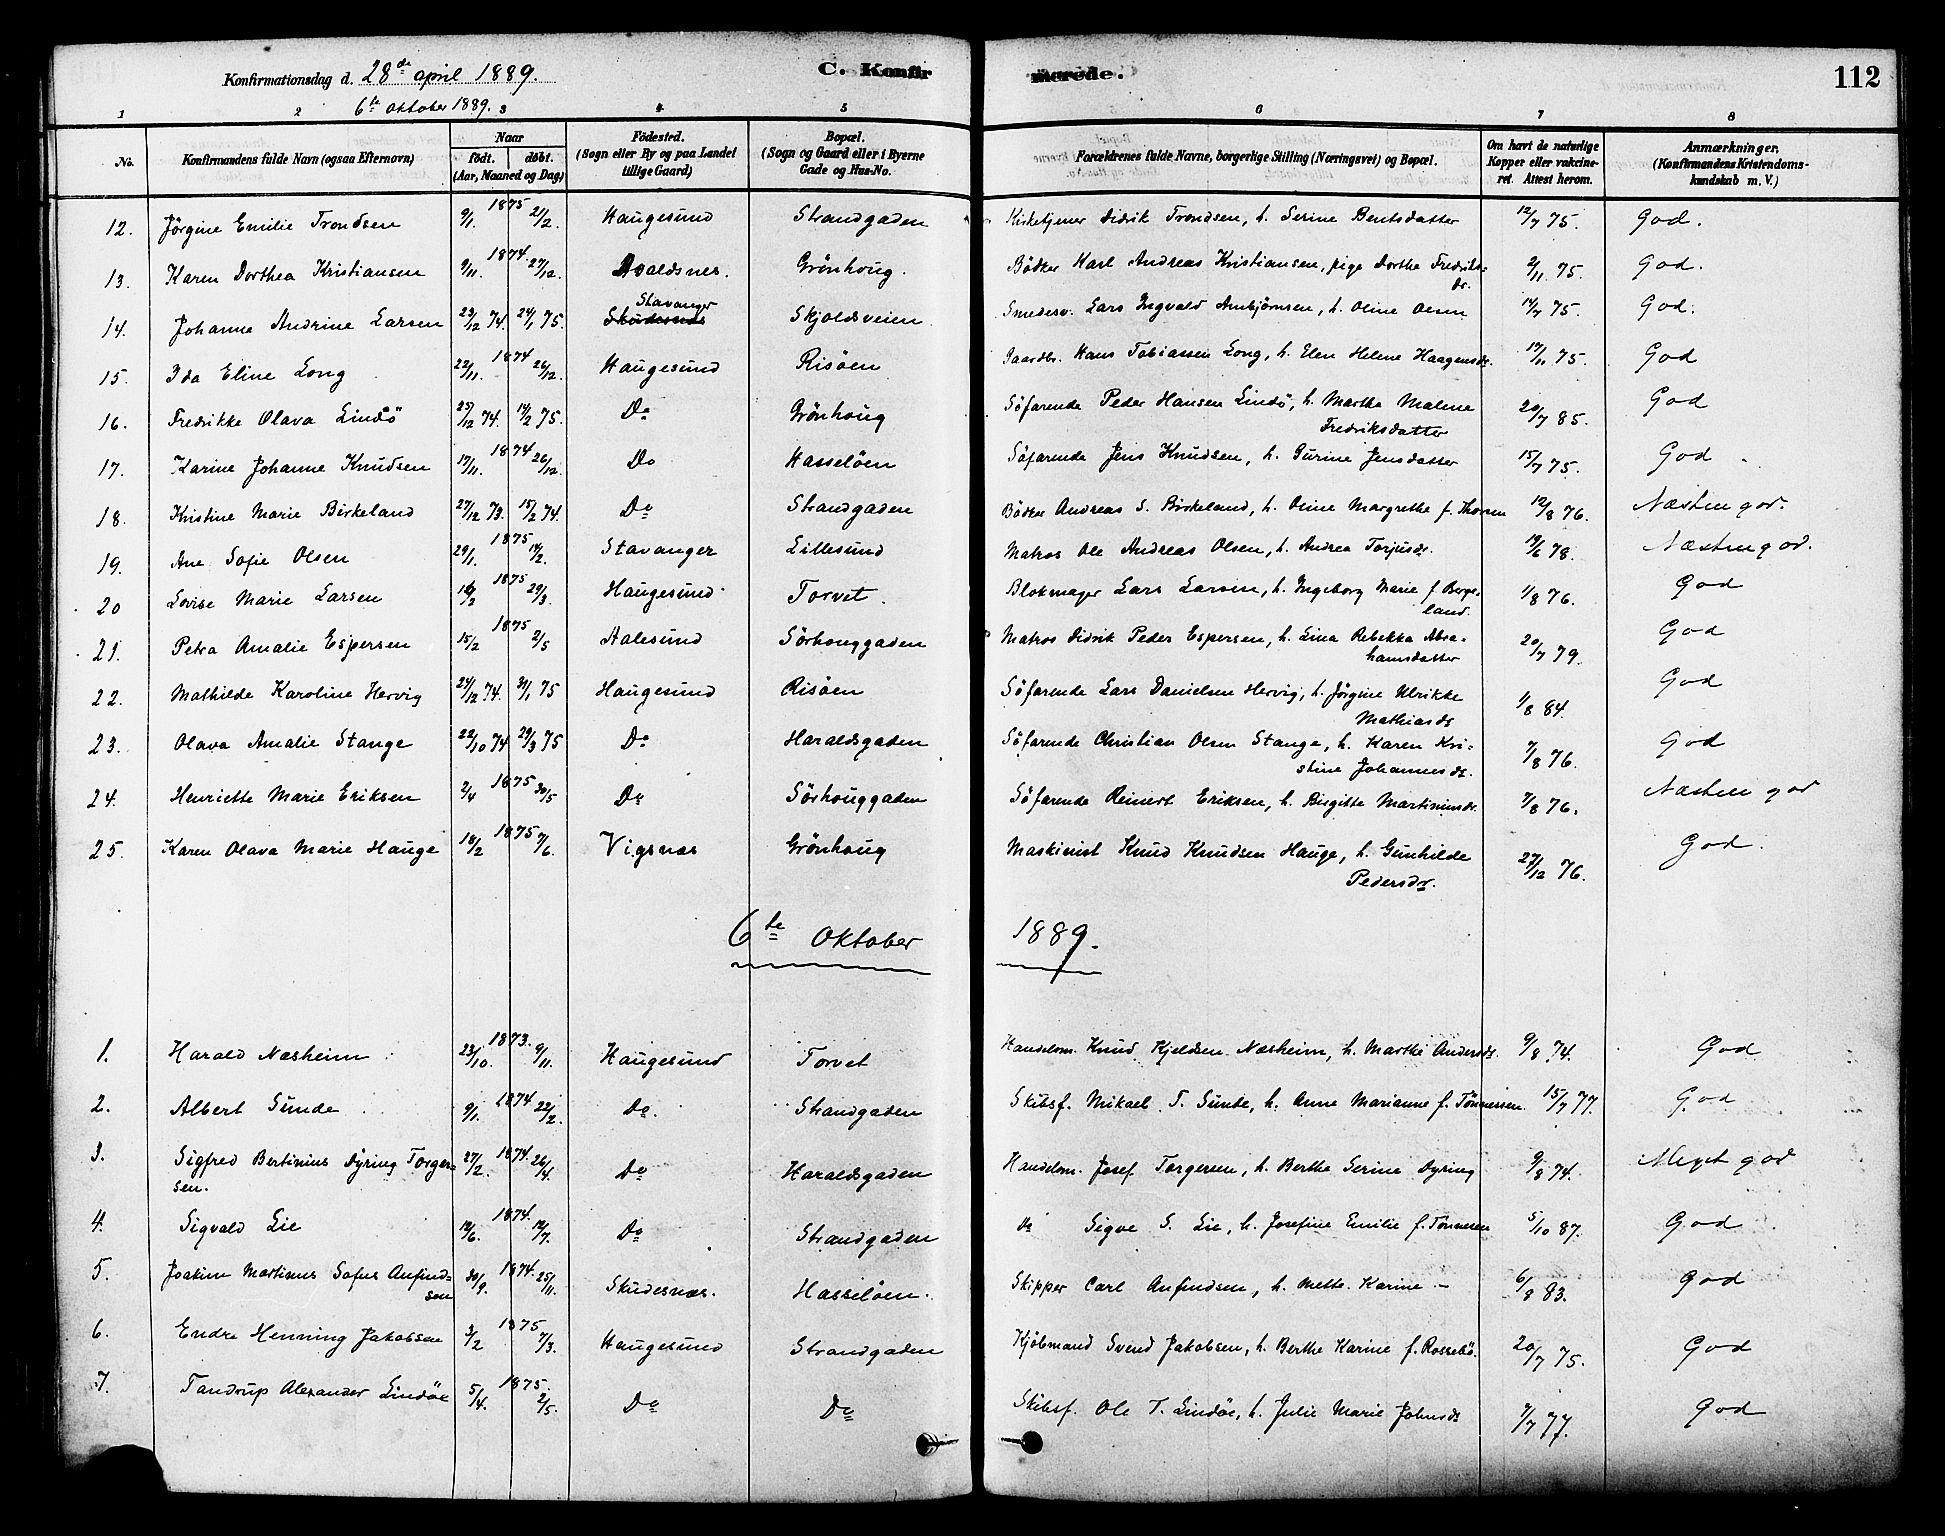 Konfirmationsdag d. 28de april 1889. C. Konfirmerede. 112
6te Oktober 1889.
1 2 3 4 5 6 7 8
No. Konfirmandens fulde Navn (ogsaa Efternavn) Naar født. døbt. (Aar, Maaned og Dag) Fødested. (Sogn eller By og paa Landet tillige Gaard) Bopæl. (Sogn og Gaard eller i Byerne Gade og Hus-No. Forældrenes fulde Navne, borgerlige Stilling (Næringsvei) og Bopæl. Om havt de naturlige Kopper eller vakcineret. Attest herom. Anmærkninger. (Konfirmandens Kristendomskundskab m. V.)
12. Jörgine Emilie Trondsen 9/1. 1875 2/2. Haugesund Strandgaden Kirketjener Didrik Trondsen, h. Serine Bentsdatter 12/7 75. God.
13. Karen Dorthea Kristiansen 9/11. 1874. 27/12. Avaldsnes. Grönhoug. Bödker Karl Andreas Kristiansen, pige Dorthe Fredriksdr. 2/11 75. God.
14. Johanne Andrine Larsen 23/12 74. 24/1 75. Skudesnæs Stavanger Skjoldsveien Smedesv. Lars Ingvald Ambjörnsen, h. Oline Olsen 14/7 75. God.
15. Ida Eline Long 22/11. 1874 26/12. Haugesund Risöen Gaardbr. Hans Tobiassen Long, h. Elen Helene Haagensdr. 17/11 75. God
16. Fredrikke Olava Lindö 25/12 74. 14/2 75. Do Grönhoug Söfarende Peder Hansen Lindö, h. Marthe Malene Fredriksdatter 20/7 85. God
17. Karine Johanne Knudsen 17/11. 1874 26/12. Do Hasselöen Söfarende Jens Knudsen, h. Gurine Jensdatter 15/7 75. God
18. Kristine Marie Birkeland 27/12 73. 15/2 74. Do Strandgaden Bödker Andreas S. Birkeland, h. Oline Margrethe f. Thorsen 12/8 76. Næsten god.
19. Ane Sofie Olsen 29/1. 1875 14/2. Stavanger Lillesund Matros Ole Andreas Olsen, h. Andrea Torjusdr. 19/6 78. Næsten god.
20 Lovise Marie Larsen 1875 29/3. Haugesund Torvet. Blokmager Lars Larsen, h. Ingeborg Marie f. Bergeland. 1/8 76. God
21. Petra Amalie Espersen 15/2 1875 2/5 Aalesund Sörhouggaden Matros Didrik Peder Espersen, h. Lina Rebekka Abrahamsdatter 20/7 79. God
22. Mathilde Karoline Hervig 24/12 74. 31/1 75 Haugesund Risöen Söfarende Lars Danielsen Hervig, h. Jörgine Ulrikke Mathiasdr 1/8 84. God
23. Olava Amalie Stange 22/10 74 29/3 75 Do Haraldsgaden Söfarende Christian Olsen Stange, h. Karen Kristine Johannesdr. 7/8 76. God
24. Henriette Marie Eriksen 2/4 1875 30/5 Do Sörhouggaden Söfarende Reinert Eriksen, h. Birgitte Martinusdr. 7/8 76. Næsten god
25. Karen Olava Marie Hauge 18/2 1875 7/6. Vigsnæs Grönhoug Maskinist Knud Knudsen Hauge, h. Gunhilde Pedersdr. 27/12 76. God.
6te Oktober 1889.
1. Harald Næsheim 23/10. 1873. 9/11. Haugesund Torvet Handelsm. Knud Kjeldsen Næsheim, h. Marthe Andersdr. 9/8 74. God
2. Albert Sunde 9/1. 1874 22/2. Do. Strandgaden Skibsf. Mikael T. Sunde, h. Anne Marianne f. Tönnessen. 15/7 77. God
3. Sigfred Bertinius Dyring Torgersen. 27/2. 1874. 26/4. Do Haraldsgaden Handelsm. Josef Torgersen, h. Berthe Serine Dyring 9/8 74. Meget god
4. Sigvald Lie 12/6. 1874. 12/7. Do Strandgaden Do Sigve S. Lie, h. Josefine Emilie f. Tönnesen 5/10 87. God
5. Joakim Martinus Sofus Anfindsen 30/9. 1874. 25/11. Skudesnæs. Hasselöen. Skipper Carl Anfindsen, h. Mette Karine — 6/8 83. God
6. Endre Henning Jakobsen 3/2 1875 7/3. Haugesund Strandgaden Kjöbmand Svend Jakobsen, h. Berthe Karine f. Rossebö. 20/7 75. God
7. Tandrup Alexander Lindöe 5/4. 1875. 2/5. Do Do Skibsf. Ole T. Lindöe, h. Julie Marie Johnsdr 7/7 77. God